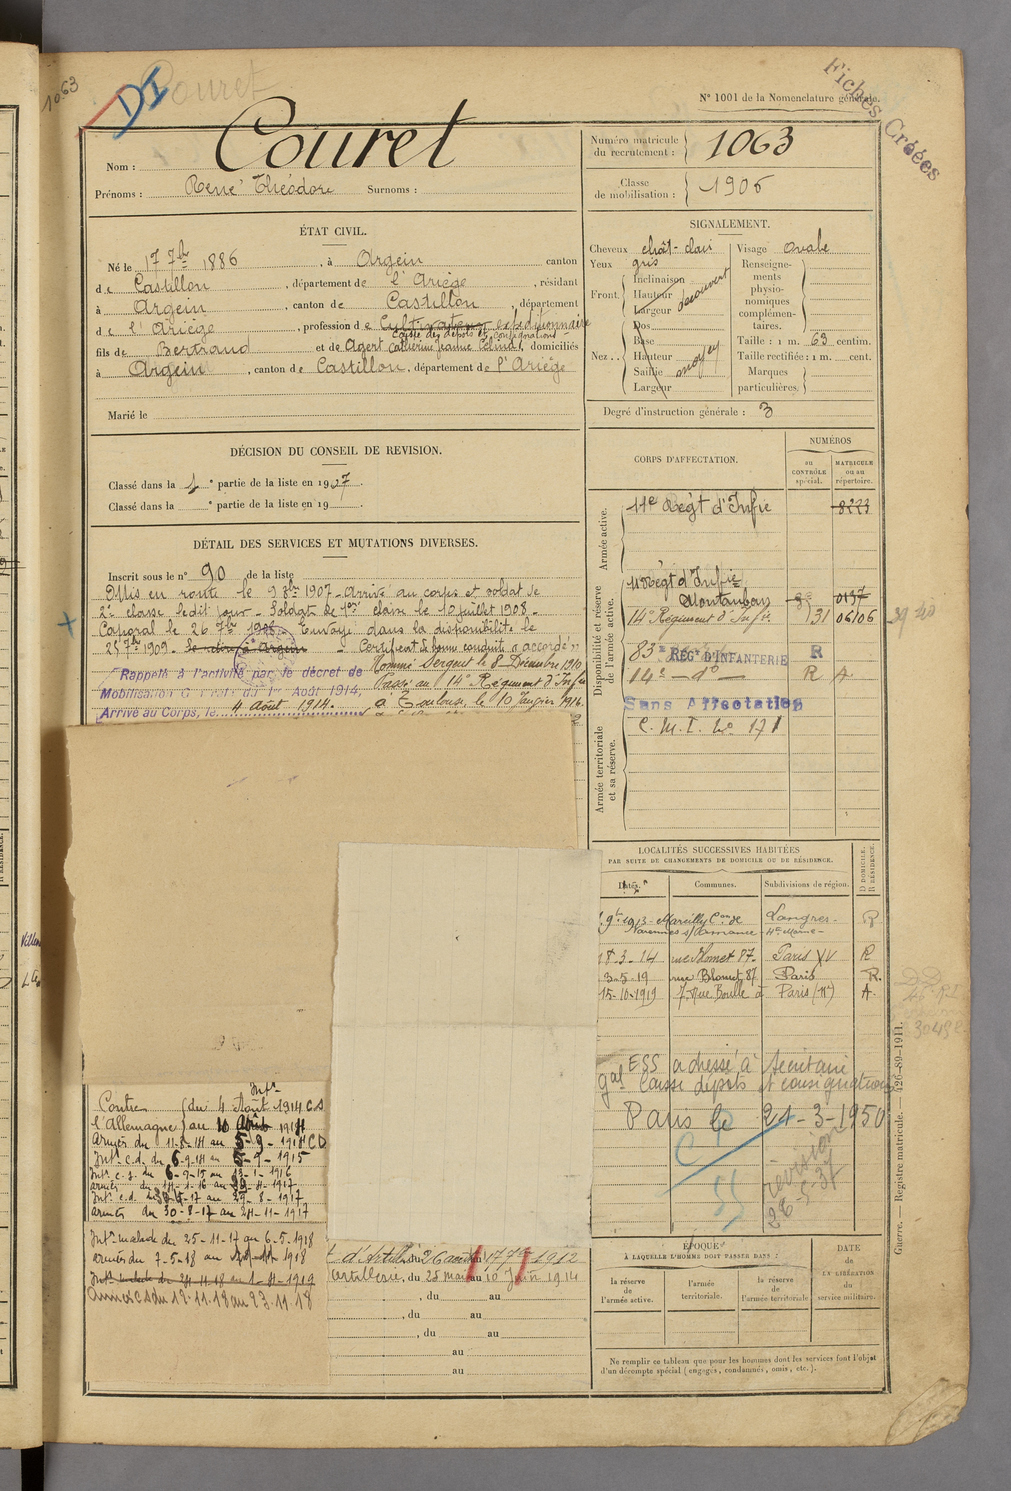 1063
DI
Couret
Fiches Créées
N° 1001 de la Nomenclature générale.
Nom : Couret
Prénoms : René Théodore Surnoms :
Numéro matricule du recrutement : 1063
Classe de mobilisation : 1906
ÉTAT CIVIL.
Né le 17 7bre 1886, à Argein canton
de Castillon, département de l'Ariège, résidant
à Argein, canton de Castillon, département
de l'Ariège, profession de Cultivateur expéditionnaire
Caisse des dépôts et consignations
fils de Bertrand et de Agert Catherine Jeanne, domiciliés
à Argein, canton de Castillon, département de l'Ariège
Marié le
SIGNALEMENT.
Cheveux chât-clair
Yeux gris
Front. Inclinaison
Hauteur
Largeur
découvert
Nez. Dos
Base
Hauteur
Saillie
Largeur
moyen
Visage ovale
Renseignements physionomiques complémentaires.
Taille : 1 m. 63 centim.
Taille rectifiée : 1 m. cent.
Marques particulières.
Degré d'instruction générale : 3
DÉCISION DU CONSEIL DE REVISION.
Classé dans la 1e partie de la liste en 1907.
Classé dans la e partie de la liste en 19
DÉTAIL DES SERVICES ET MUTATIONS DIVERSES.
Inscrit sous le n° 90 de la liste
Mis en route le 9 8bre 1907 - Arrivé au corps et soldat de
2e classe ledit jour - Soldat de 1ere classe le 10 juillet 1908 -
Caporal le 26 7bre 1908 Envoyé dans la disponibilité le
25 7bre 1909. se retire à Argein Certificat de bonne conduite "accordé"
Nommé Sergent le 8 Décembre 1910
Rappelé à l'activité par le décret de
Passé au 14e Régiment d'Infie
Mobilisation Générale du 1er Août 1914,
à Toulouse, le 10 Janvier 1916.
Arrivé au Corps, le 4 Août 1914.
CORPS D'AFFECTATION.
NUMÉROS
au CONTRÔLE spécial.
MATRICULE ou au répertoire.
Armée active.
11e Régt d'Infie 8223
Disponibilité et réserve de l'armée active.
11e Régt d'Infie Montauban 0137
14e Régiment d'Infie 131 06106
83e RÉGt D'INFANTERIE R
14e - do - R A
Sans Affectation
C. M. I. No 171
Armée territoriale et sa réserve.
LOCALITÉS SUCCESSIVES HABITÉES
PAR SUITE DE CHANGEMENTS DE DOMICILE OU DE RÉSIDENCE.
Dates. Communes. Subdivisions de région.
D DOMICILE. R RÉSIDENCE.
1913 - Marcilly Con de Varennes s/Amance Langres - Hte Marne - R
18-3-14 rue Blomet 87- Paris XV R
3-5-19 rue Blomet, 87 Paris R.
15-10-1919 7, Rue Boulle à Paris (11e) A.
ESS adressé à Secrétaire
gal Caisse dépôts et consignations
Paris le 21-3-1950
révision
28-5-37
Contre l'Allemagne
Intr
du 4 Août 1914 CS
au 10 Août 1914
Armées du 11-8-14 au 5-9-1914 CD
Intr c.d. du 6-9-14 au 5-9-1915
Intr c.s. du 6-9-15 au 13-1-1916
armées du 14-1-16 au 1917
Intr c.d. 17 au 29-8-1917
armées du 30-8-17 au 24-11-1917
Intr malade du 25-11-17 au 6-5-1918
armées du 7-5-18 au 1918
Armée CS du 12.11.18 au 23.11.18
du 26 août au 17 7bre 1912
Castillon, du 25 mai au 10 Juin 1914
, du au
, du au
, du au
au
au
ÉPOQUE
À LAQUELLE L'HOMME DOIT PASSER DANS :
la réserve de l'armée active.
l'armée territoriale.
la réserve de l'armée territoriale.
DATE DE LA LIBÉRATION du service militaire.
Ne remplir ce tableau que pour les hommes dont les services font l'objet
d'un décompte spécial (engagés, condamnés, omis, etc.).
Guerre. — Registre matricule. — 426-89-1911.